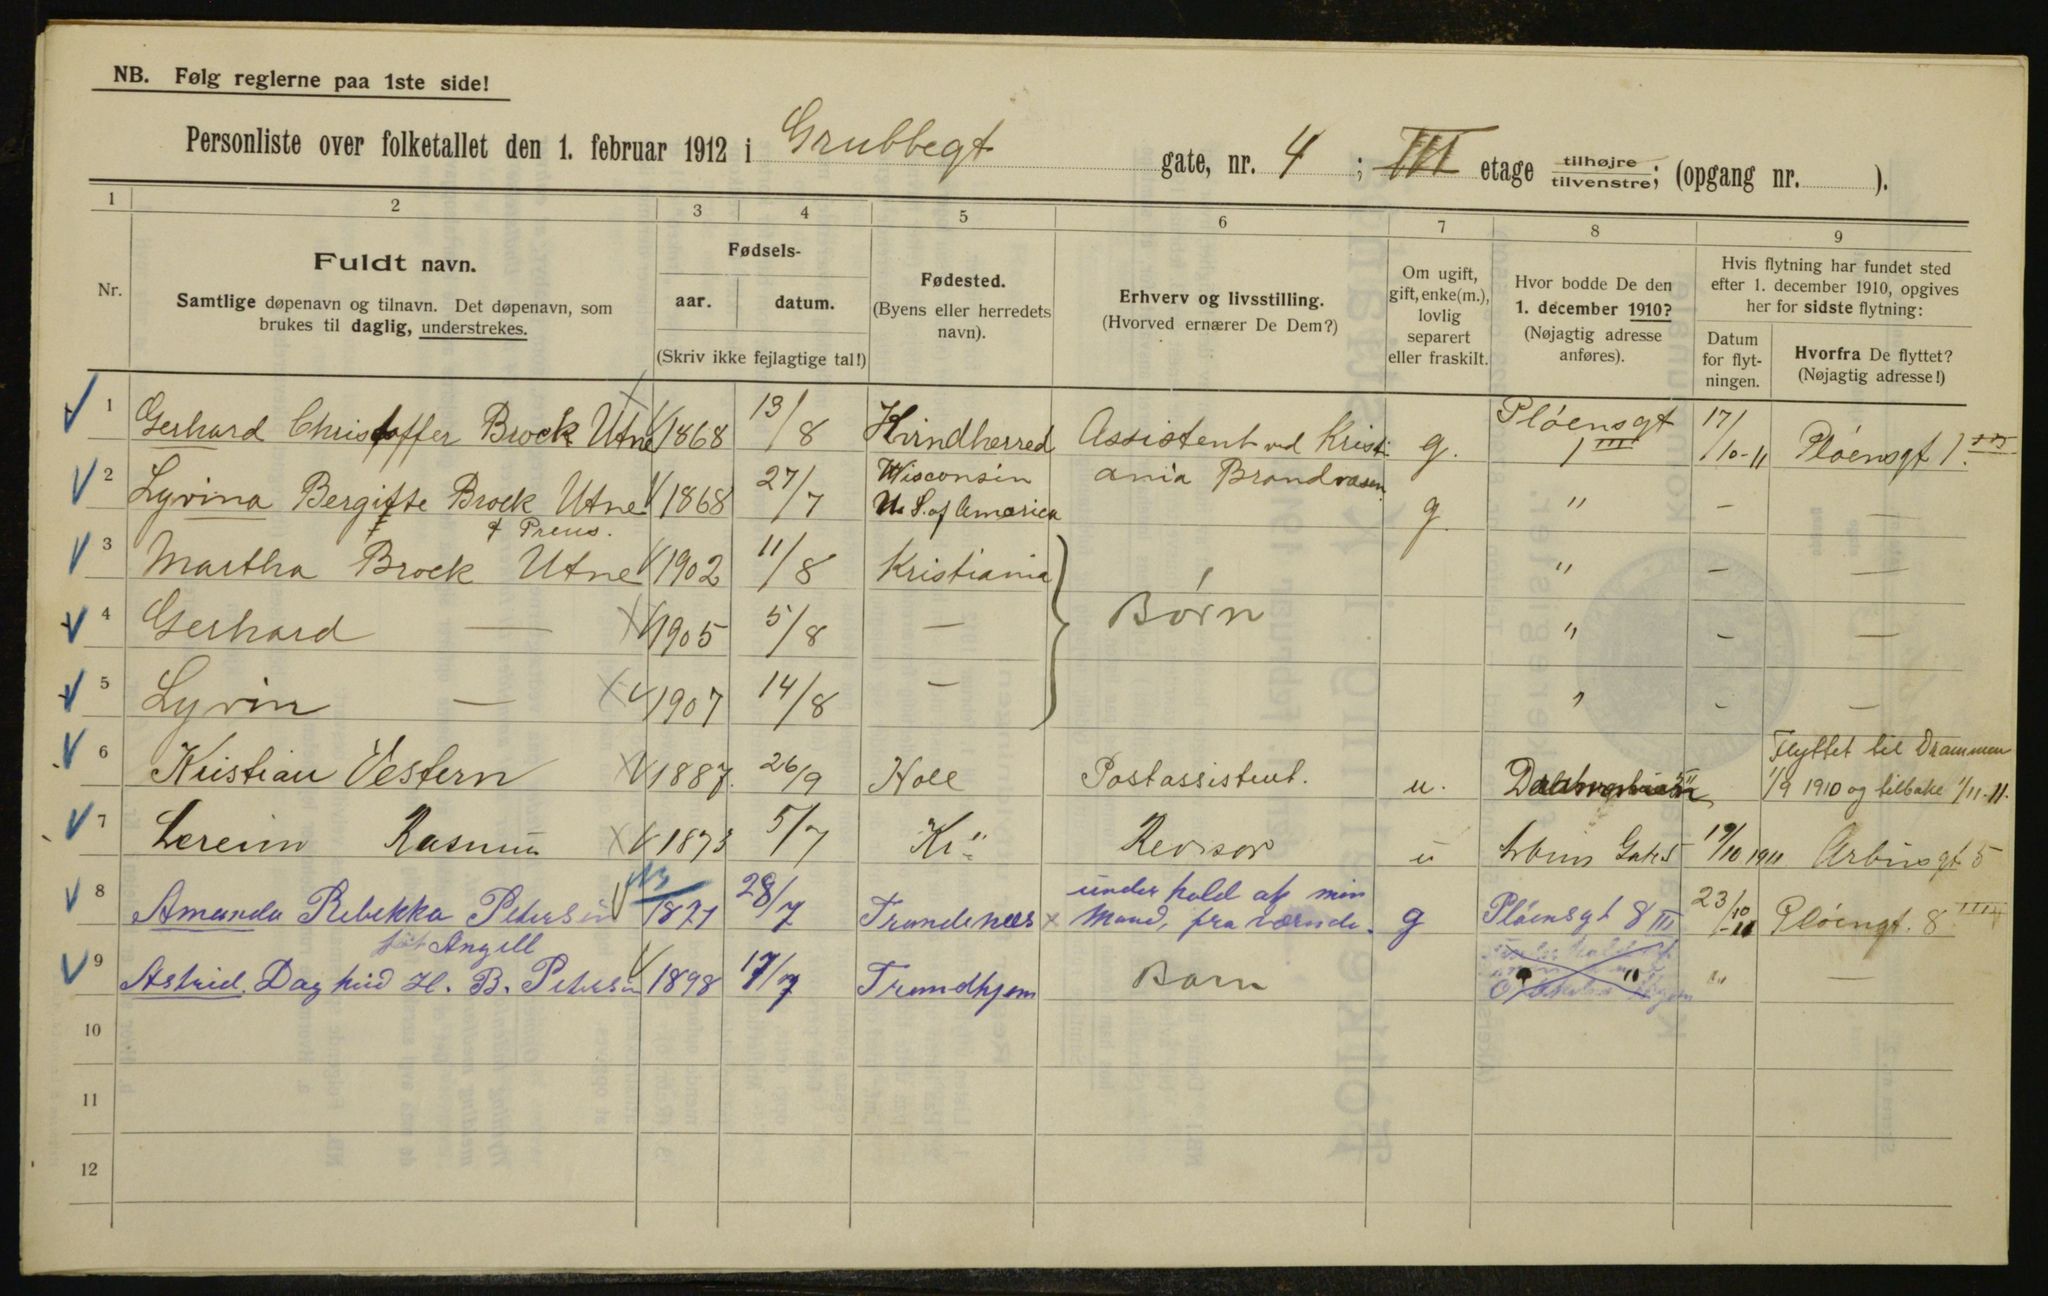 NB. Følg reglerne paa 1ste side!
Personliste over folketallet den 1. februar 1912 i Grubbegt gate, nr. 4 ; III etage tilhøjre tilvenstre; (opgang nr. ).
1 2 3 4 5 6 7 8 9
Nr.
Fuldt navn.
Samtlige døpenavn og tilnavn. Det døpenavn, som
brukes til daglig, understrekes.
Fødsels-
aar. datum.
(Skriv ikke fejlagtige tal!)
Fødested.
(Byens eller herredets
navn).
Erhverv og livsstilling.
(Hvorved ernærer De Dem?)
Om ugift,
gift, enke(m.),
lovlig
separert
eller fraskilt.
Hvor bodde De den
1. december 1910?
(Nøjagtig adresse
anføres).
Hvis flytning har fundet sted
efter 1. december 1910, opgives
her for sidste flytning:
Datum
for flyt-
ningen.
Hvorfra De flyttet?
(Nøjagtig adresse!)
1 Gerhard Christoffer Brock Utne 1868 13/8 Kvindherred Assistent ved Kristi g. Pløensgt 1 III 17/10-11 Pløensgt 1. III
2 Lyvina Bergitte Brock Utne 1868 27/7 Wisconsin U. S. of America ania Brandvæsen g. " — —
f Preus.
3 Martha Brock Utne 1902 11/8 Kristiania " — —
4 Gerhard — 1905 5/8 — Børn " — —
5 Lyvin — 1907 14/8 — " — —
6 Kristian Vestern 1887. 26/9 Hole Postassistent. u. Flyttet til Drammen
1/9 1910 og tilbake 1/11-11.
7 Lereim Rasmus 1873 5/7 Kr" Revisor u Arbins Gate 5 19/10 1911 Arbinsgt 5
8 Amanda Rebekka Petersen 1871 28/7 Trondenæs x under hold af min
Mand, fra værnde. g Pløensgt 8 III 23/10-11 Pløengt. 8 III
født Angell
9 Astrid. Daghild H. B. Petersen 1898 17/7 Trondhjem Barn " " " —
10
11
12